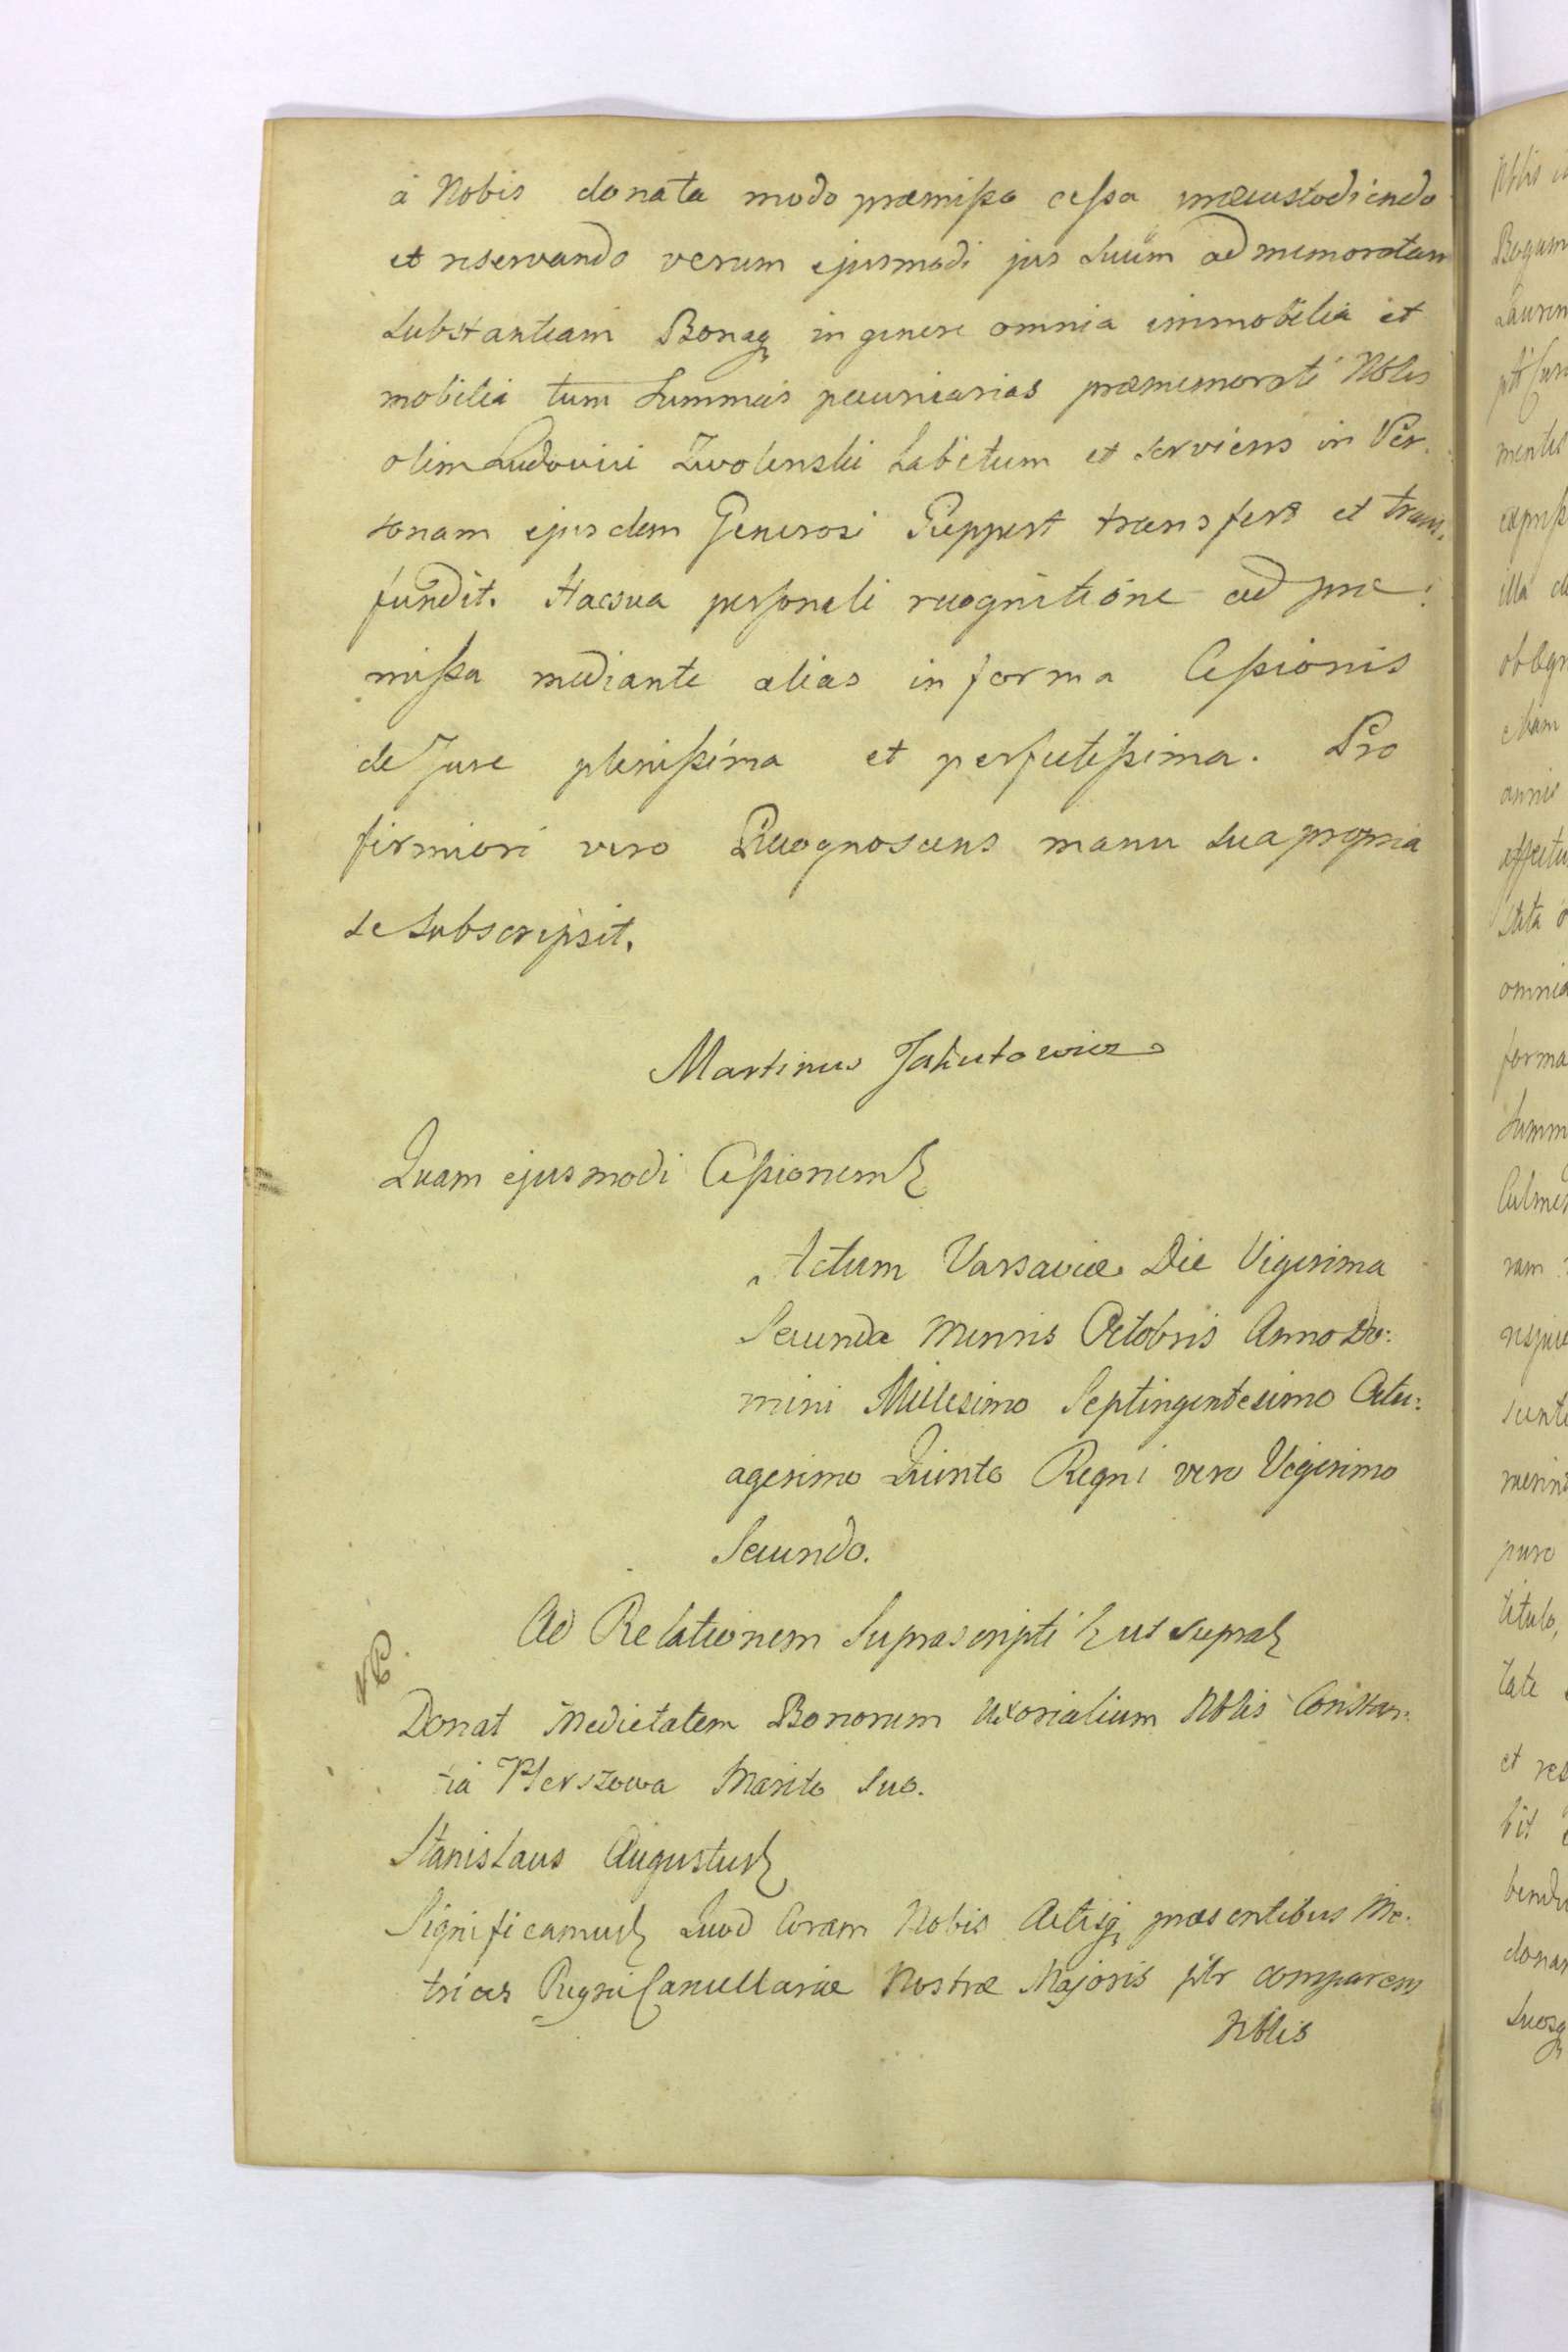 à Nobis donata modo præmissa cessa præcustodiendo
et reservando verum ejusmodi jus suum ad memoratam
substantiam Bonaq, in genere omnia immobilia et
mobilia tum summas pecuniarias præmemorati Nblis
olim Ludovici Zwolenski habitum et serviens in Per-
sonam ejusdem Generosi Pieppert transfert et trans-
fundit. Hac sua personali recognitione ad præ:
missa mediante alias in forma Cessionis
de Jure plenissima et perfectissima. Pro
firmiori vero Recognoscens manu sua propria
se subscripsit.
Martinus Jakutowicz
Quam ejusmodi Cessionem
Actum Varsaviæ Die Vigesima
Secunda Mensis Octobris Anno Do:
mini Millesimo Septingentesimo Octu:
agesimo Quinto Regni vero Vigesimo
Secundo.
Ad Relationem Suprascripti ut supra
Donat Medietatem Bonorum Uxorialium Nblis Constan:
tia Pferszowa Marito Suo.
Stanislaus Augustus
Significamus Quod Coram Nobis Actisq, præsentibus Me:
trices Regni Cancellariæ Nostræ Majoris pltr comparens
Nblis